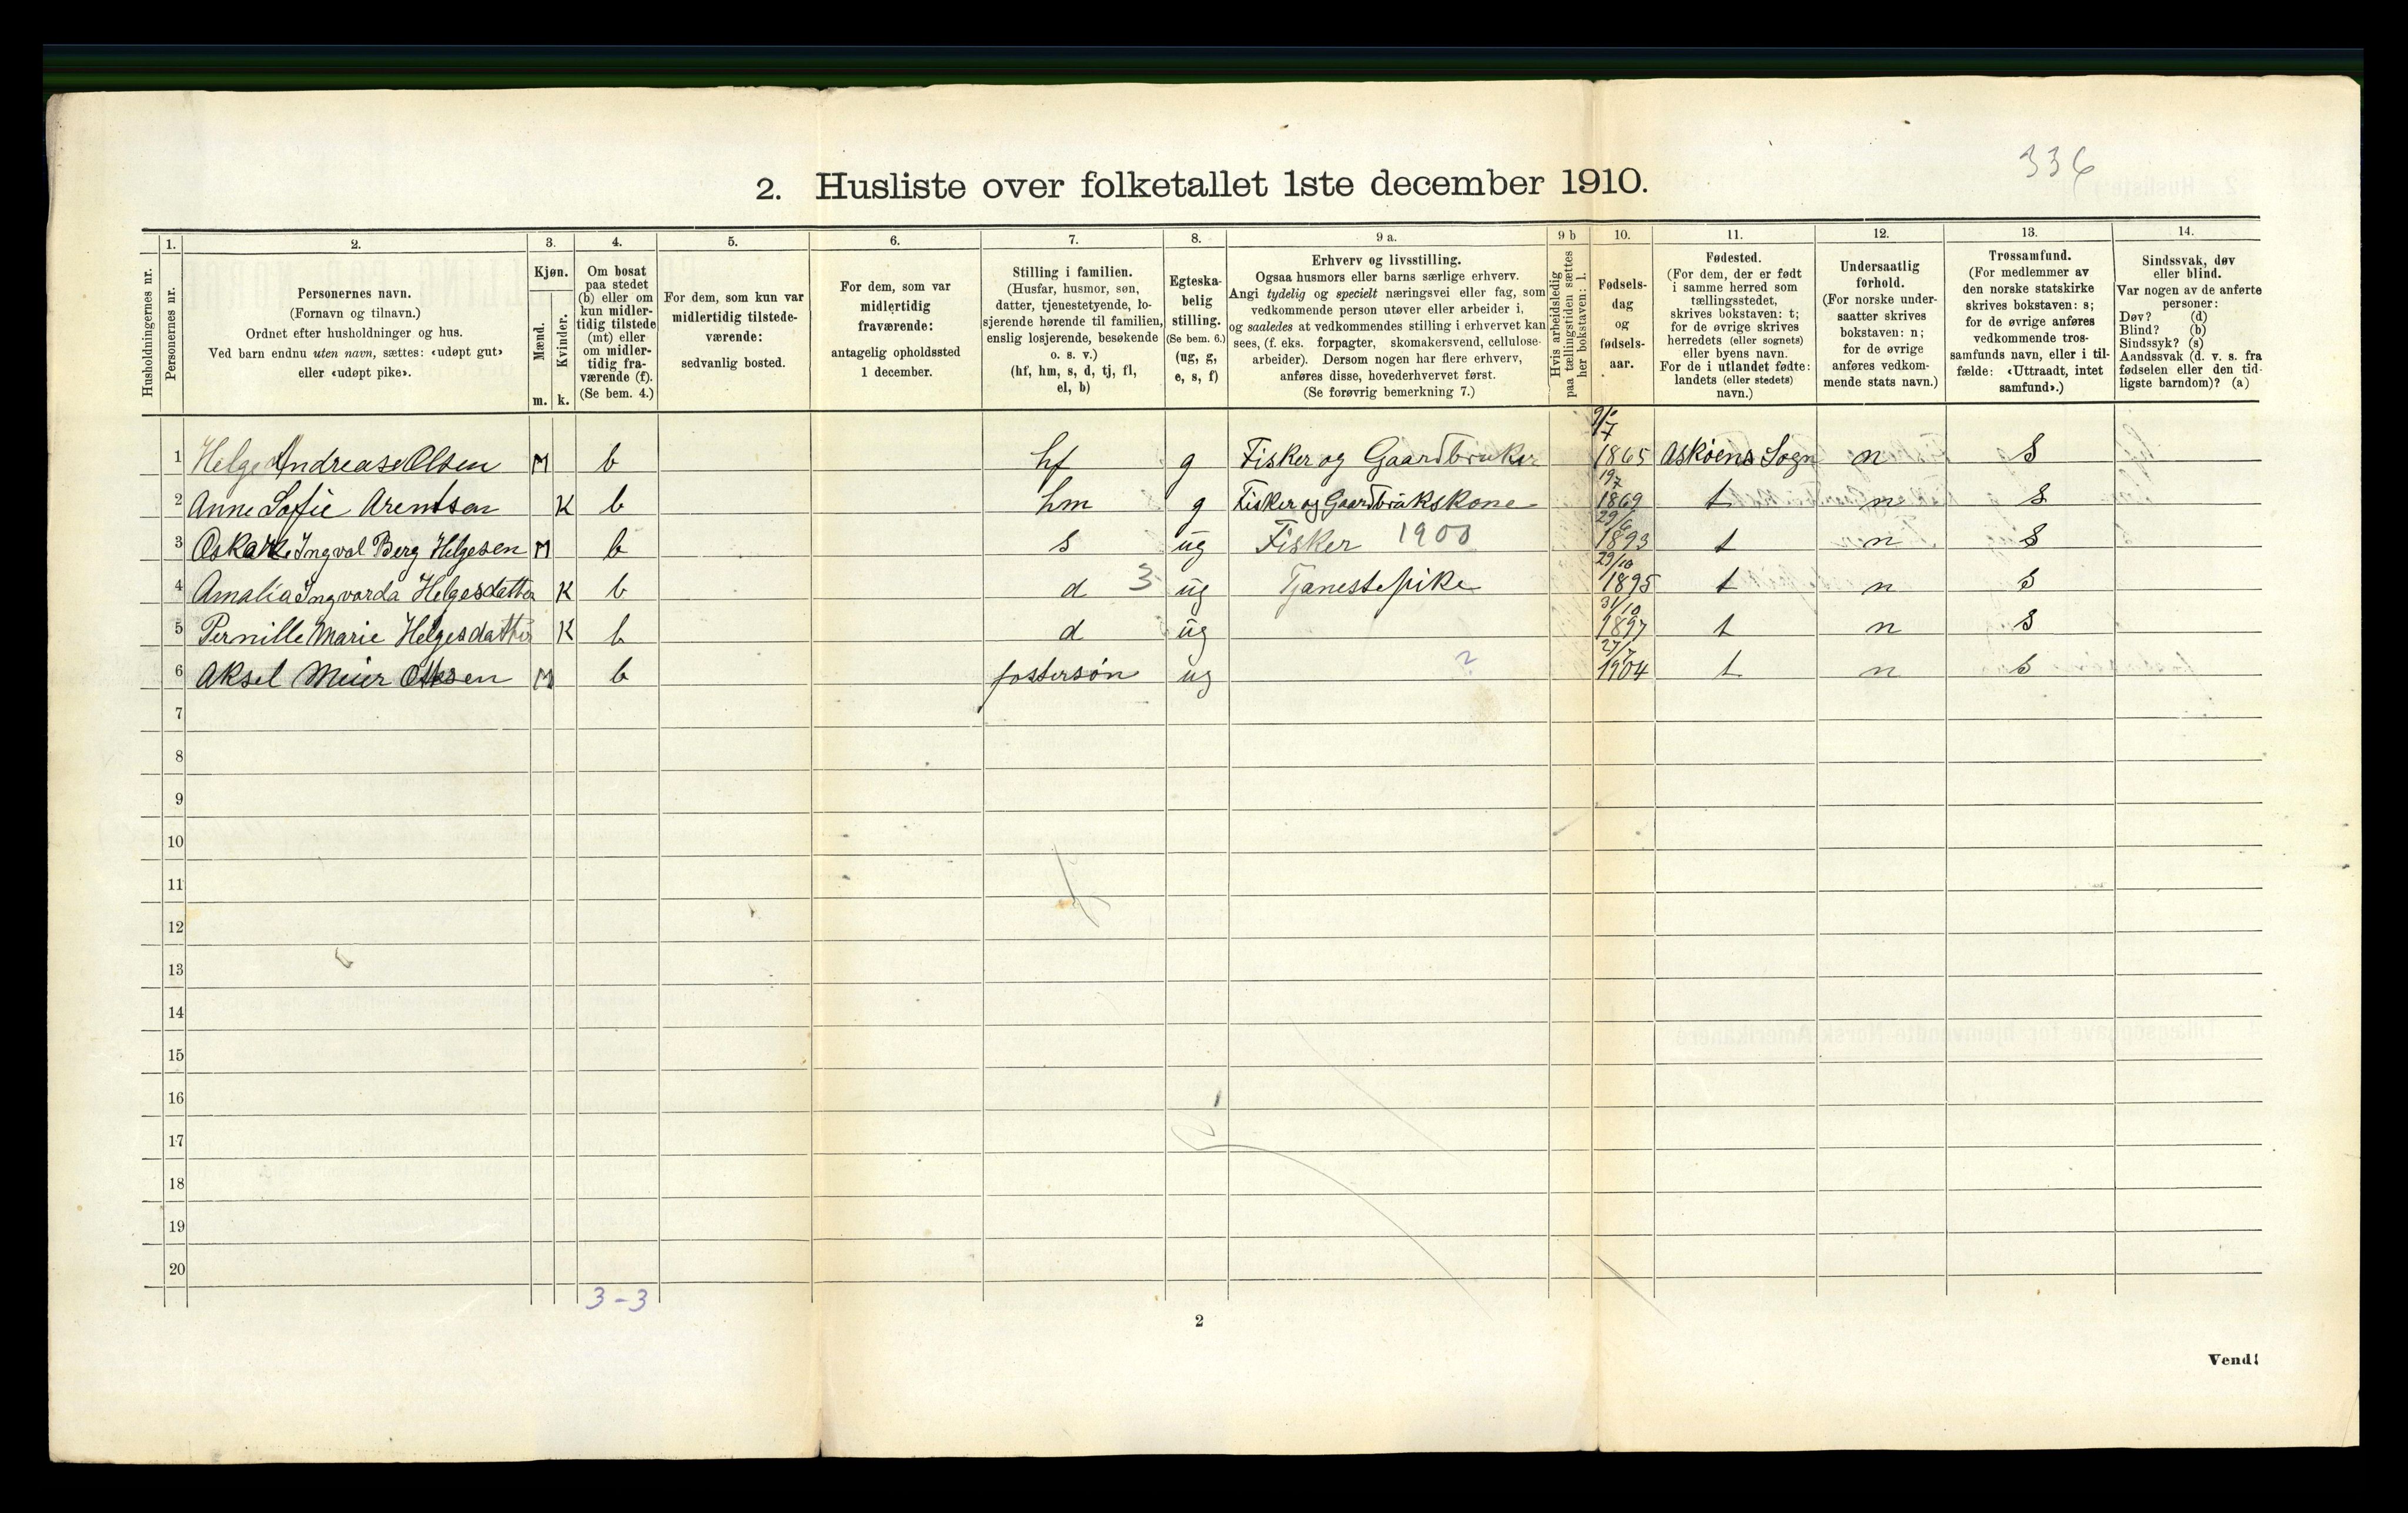 336
2. Husliste over folketallet 1ste december 1910.
Husholdningernes nr.
1.
Personernes nr.
2.
Personernes navn.
(Fornavn og tilnavn.)
Ordnet efter husholdninger og hus.
Ved barn endnu uten navn, sættes: «udøpt gut»
eller «udøpt pike».
3.
Kjøn.
Mænd.
Kvinder.
m.
k.
4.
Om bosat
paa stedet
(b) eller om
kun midler-
tidig tilstede
(mt) eller
om midler-
tidig fra-
værende (f).
(Se bem. 4.)
5.
For dem, som kun var
midlertidig tilstede-
værende:
sedvanlig bosted.
6.
For dem, som var
midlertidig
fraværende:
antagelig opholdssted
1 december.
7.
Stilling i familien.
(Husfar, husmor, søn,
datter, tjenestetyende, lo-
sjerende hørende til familien,
enslig losjerende, besøkende
o. s. v.)
(hf, hm, s, d, tj, fl,
el, b)
8.
Egteska-
belig
stilling.
(Se bem. 6.)
(ug, g,
e, s, f)
9 a.
Erhverv og livsstilling.
Ogsaa husmors eller barns særlige erhverv.
Angi tydelig og specielt næringsvei eller fag, som
vedkommende person utøver eller arbeider i,
og saaledes at vedkommendes stilling i erhvervet kan
sees, (f. eks. forpagter, skomakersvend, cellulose-
arbeider). Dersom nogen har flere erhverv,
anføres disse, hovederhvervet først.
(Se forøvrig bemerkning 7.)
9 b
Hvis arbeidsledig
paa tællingstiden sættes
her bokstaven: l.
10.
Fødsels-
dag
og
fødsels-
aar.
11.
Fødested.
(For dem, der er født
i samme herred som
tællingsstedet,
skrives bokstaven: t;
for de øvrige skrives
herredets (eller sognets)
eller byens navn.
For de i utlandet fødte:
landets (eller stedets)
navn.)
12.
Undersaatlig
forhold.
(For norske under-
saatter skrives
bokstaven: n;
for de øvrige
anføres vedkom-
mende stats navn.)
13.
Trossamfund.
(For medlemmer av
den norske statskirke
skrives bokstaven: s;
for de øvrige anføres
vedkommende tros-
samfunds navn, eller i til-
fælde: «Uttraadt, intet
samfund».)
14.
Sindssvak, døv
eller blind.
Var nogen av de anførte
personer:
Døv? (d)
Blind? (b)
Sindssyk? (s)
Aandssvak (d. v. s. fra
fødselen eller den tid-
ligste barndom)? (a)
1 Helge Andreas Olsen M b hf g Fisker og Gaardbruker 9/7 1865 Askøens Sogn n S
2 Anne Sofie Arentsen K b hm g Fisker og Gaardbrukskone 19/7 1869 t n S
3 Oskar Ingval Berg Helgesen M b s ug Fisker 1900 29/6 1893 t n S
4 Amalia Ingvarda Helgesdatter K b d 3 ug Tjanestepike 29/10 1895 t n S
5 Pernille Marie Helgesdatter K b d ug 31/10 1897 t n S
6 Aksel Meier Ottesen M b fostersøn ug ? 27/7 1904 t n S
7
8
9
10
11
12
13
14
15
16
17
18
19
20
3-3
2
Vend!